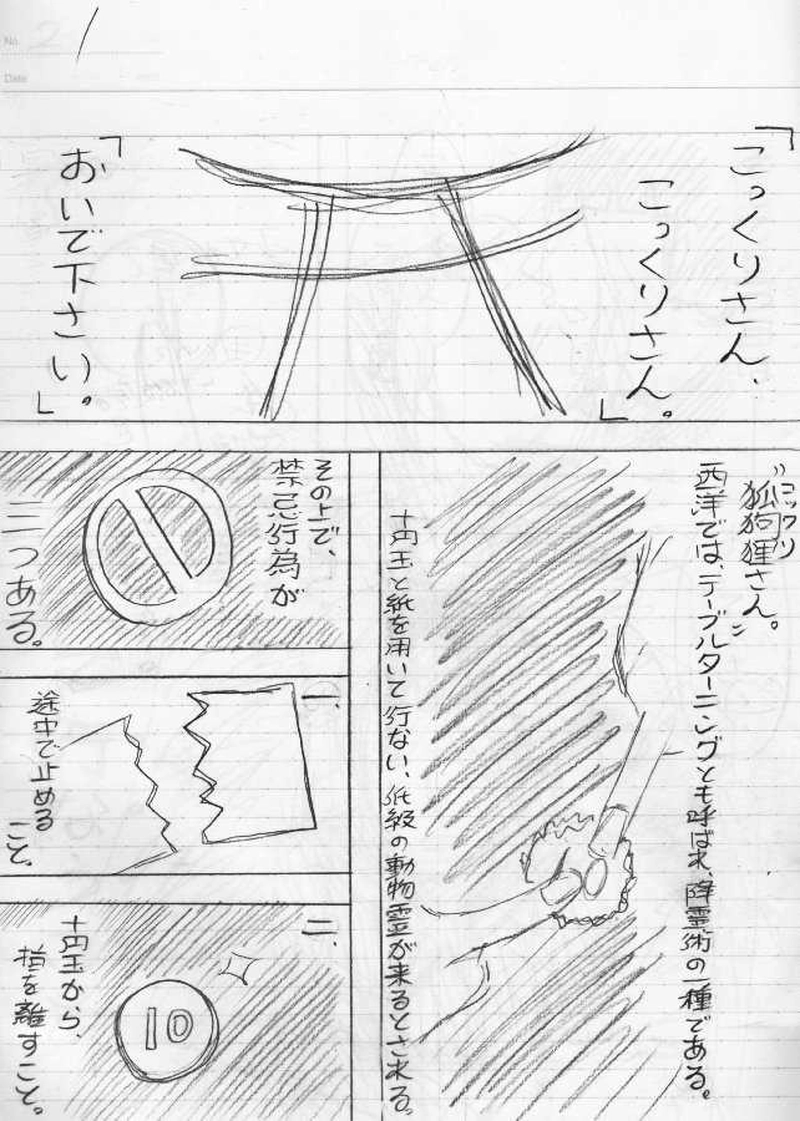 No.
Date
1
「こっくりさん、
こっくりさん。」
「おいで下さい」。
"狐狗狸さん。
コックリ
西洋では、テーブルターニングとも呼ばれ、降霊術の一種である。
十円玉と紙を用いて行ない、低級の動物霊が来るとされる。
その上で、
禁忌行為が
三つある。
一、
途中で止める
こと。
二、
十円玉から、
指を離すこと。
10